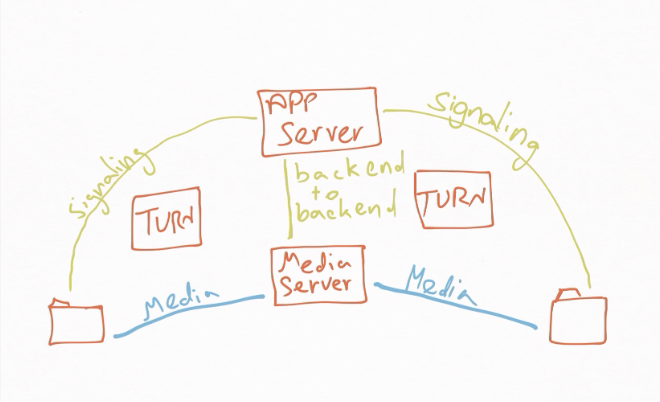 APP
Server
Signaling
Signaling
backend
to
backend
TURN
TURN
Media
Server
Media
Media